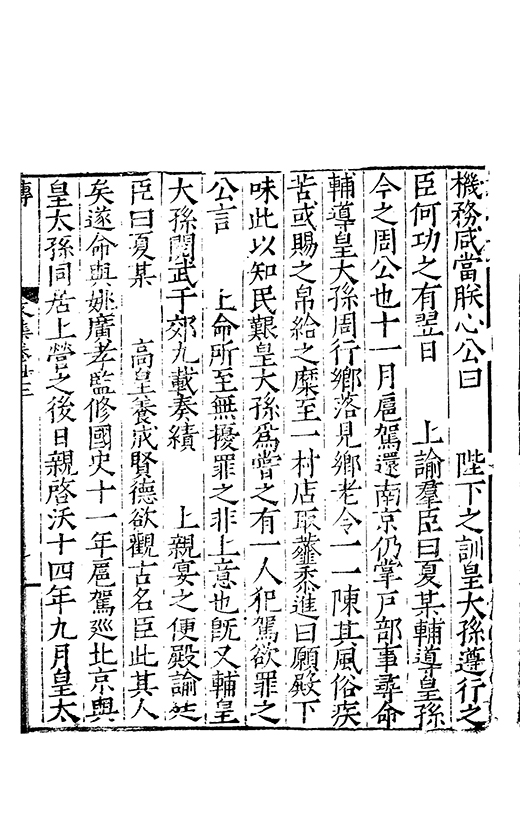 機務咸當朕心公曰　　陛下之訓皇大孫遵行之
臣何功之有翌日　　上諭羣臣曰夏某輔導皇孫
今之周公也十一月扈駕還南京仍掌戶部事尋命
輔導皇大孫周行鄉落見鄉老令一一陳其風俗疾
苦或賜之帛給之糜至一村店取虀黍進曰願殿下
味此以知民艱皇大孫爲嘗之有一人犯駕欲罪之
公言　　上命所至無擾罪之非上意也旣又輔皇
大孫閱武于郊九載奏績　　上親宴之便殿諭廷
臣曰夏某　　高皇養成賢德欲觀古名臣此其人
矣遂命與姚廣孝監修國史十一年扈駕巡北京與
皇太孫同居上營之後日親啓沃十四年九月皇太
傳　　文集卷廿三